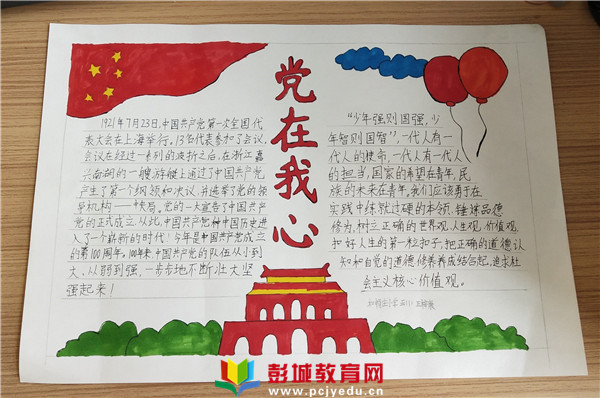 党在我心
1921年7月23日,中国共产党第一次全国代
表大会在上海举行。13名代表参加了会议,
会议在经过一系列的波折之后,在浙江嘉
兴南湖的一艘游船上通过了中国共产党
产生了第一个纲领和决议,并选举了党的领
导机构——中央局。党的一大宣告了中国共产
党的正式成立,从此,中国共产党种中国历史进
入了一个崭新的时代!今年是中国共产党成立
的第100周年。100年来中国共产党的队在从小到
大、以弱到强,一步步地不断壮大坚
强起来!
“少年强则国强,少
年智则国智”,一代人有一
代人的使命,一代人有一代人
的担当,国家的希望在青年,民
族的未来在青年,我们应该勇于在
实践中练就过硬的本领、锤炼品德
修为,树立正确的世界观、人生观、价值观,
扣好人生的第一粒扣子,把正确的道德认
知和自觉的道德修养养成结合起,追求社
会主义核心价值观。
彭城教育网
www.pcjyedu.cn